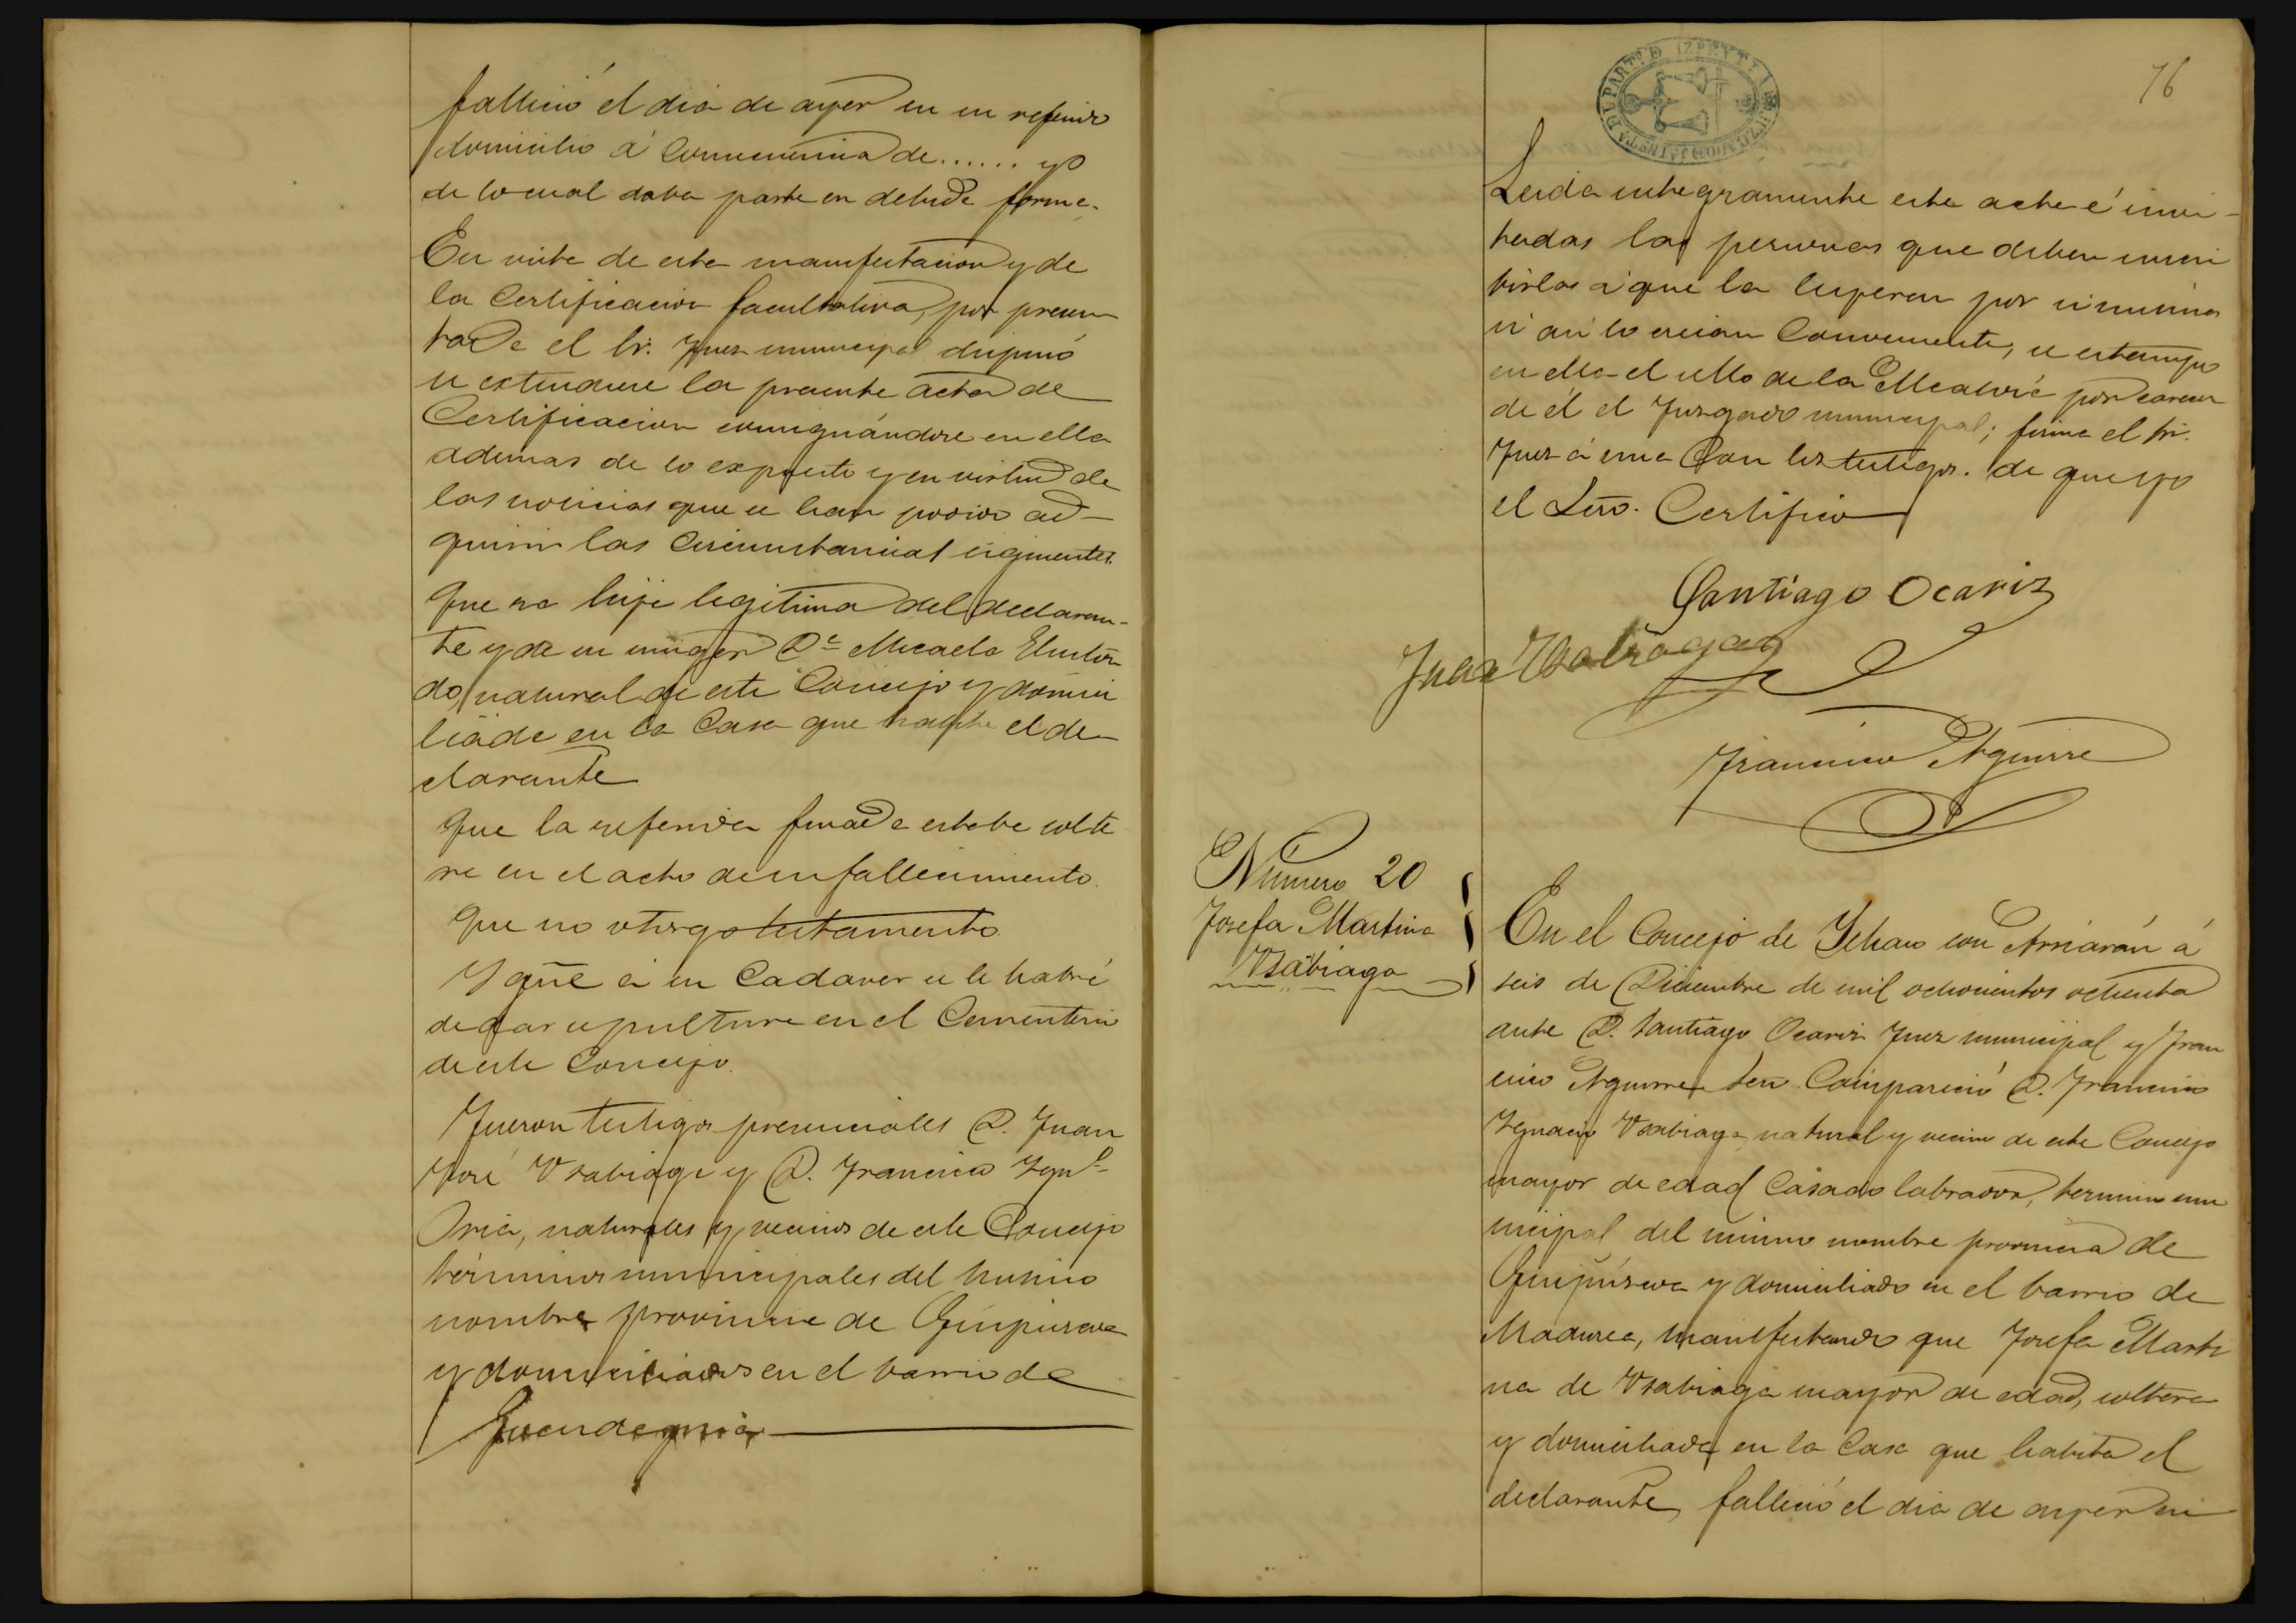 falleció el dia de ayer en su referido
domicilio á consecuencia de ...... yo
de lo cual daba parte en debida forma.
En vista de esta manifestacion y de
la Certificacion facultativa, por presen-
tada el Sr. Juez municipal dispuso
se extendiese la presente acta de
Certificacion consignándose en ella
ademas de lo expuesto y en virtud de
las noticias que se han podido ad-
quirir las circunstancias siguientes.
Que era hija legitima del declaran-
te y de su muger Dª Micaela
do, natural de este Concejo y domici
liada en la Casa que habita el de-
clarante
Que la referida finada estaba solte
ra en el acto de su fallecimiento.
Que no otorgo testamento.
Y que á su Cadaver se le habrá
de dar sepultura en el Cementerio
de este Concejo.
Fueron testigos presenciales D. Juan
José Usabiaga y D. Francisco Ignº
Oria, naturales y vecinos de este Concejo
términos municipales del mismo
nombre provincia de Guipúzcoa
y domiciliados en el barrio de
76
Leida integramente esta acta é invi-
tadas las personas que deben suscri
birlas á que la leyeran por si mismas
si asi lo creian Conveniente, se estampó
en ella el sello de la Alcaldia por carecer
de él el Juzgado municipal; firma el Sr.
Juez á una Con los testigos. de que yo
el Sno. Certifico
Santiago Ocariz
Juan Usabiaga
Francisco Aguirre
Número 20
Josefa Martina
Usabiaga
En el Concejo de Ichaso con Arriarán á
seis de Diciembre de mil ochocientos ochenta
ante D. Santiago Ocariz Juez municipal y Fran
cisco Aguirre Sno. Compareció D. Francisco
Ignacio Usabiaga natural y vecino de este Concejo
mayor de edad Casado labrador, termino mu
nicipal del mismo nombre provincia de
Guipúzcoa y domiciliado en el barrio de
manifestando que Josefa Marti
na de Usabiaga mayor de edad, soltera
y domiciliada en la Casa que habita el
declarante, falleció el dia de ayer en